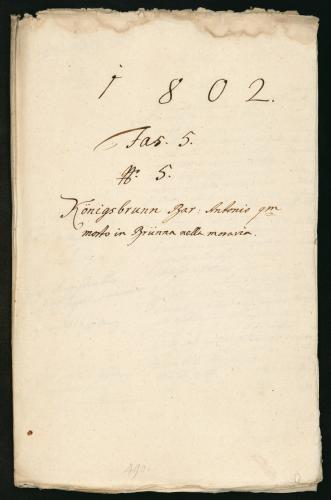 1802.
Fas. 5.
N.º 5.
Königsbrunn Bar: Antonio qm
morto in Brünna nella moravia.
490.